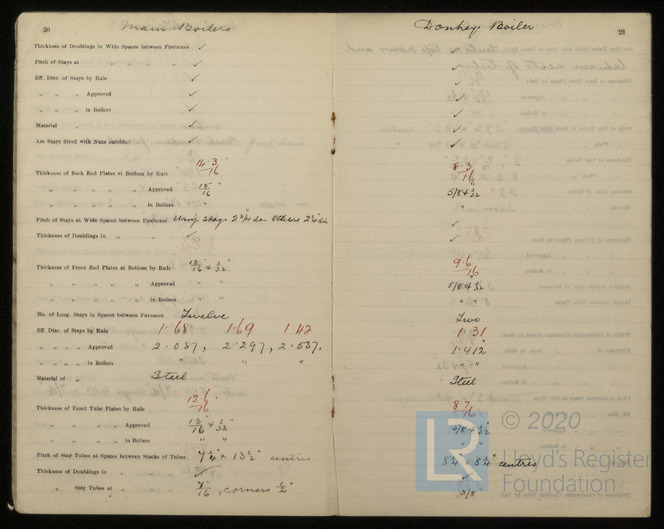 20
Main Boilers
Thickness of Doublings in Wide Spaces between Fireboxes ✓
Pitch of Stays at " " " " ✓
Eff. Diar. of Stays by Rule ✓
" " " Approved ✓
" " " in Boilers ✓
Material " ✓
Are Stays fitted with Nuts outside? ✓
Thickness of Back End Plates at Bottom by Rule 14.3/16"
" " " " " Approved 15/16"
" " " " " in Boilers "
Pitch of Stays at Wide Spaces between Fireboxes Wing Stays 2 3/4" dia Others 2 1/2" dia
Thickness of Doublings in " " " ✓
Thickness of Front End Plates at Bottom by Rule
" " " " " Approved " "
" " " " " in Boilers " "
No. of Long. Stays in Spaces between Furnaces Twelve
Eff. Diar. of Stays by Rule 1.68 1.69 1.42
" " " Approved 2.037, 2.297, 2.537.
" " " in Boilers " " "
Material of " Steel
Thickness of Front Tube Plates by Rule 12.6/16
" " " " Approved 13/16" + 1/32"
" " " " in Boilers " "
Pitch of Stay Tubes at Spaces between Stacks of Tubes × 13 1/2" centres
Thickness of Doublings in " " " ✓
" Stay Tubes at " " " 5/16", corners 1/2"
21
Donkey Boiler
✓
✓
✓
✓
✓
✓
✓
8.3/16"
5/8 + 1/32"
"
✓
✓
9.6/16
5/8 + 1/32"
" "
Two
1.31
1.412
" "
Steel
8.7/16
5/8 + 1/32"
" "
8 1/4" centres
✓
3/8"
LR
© 2020
Lloyd's Register
Foundation